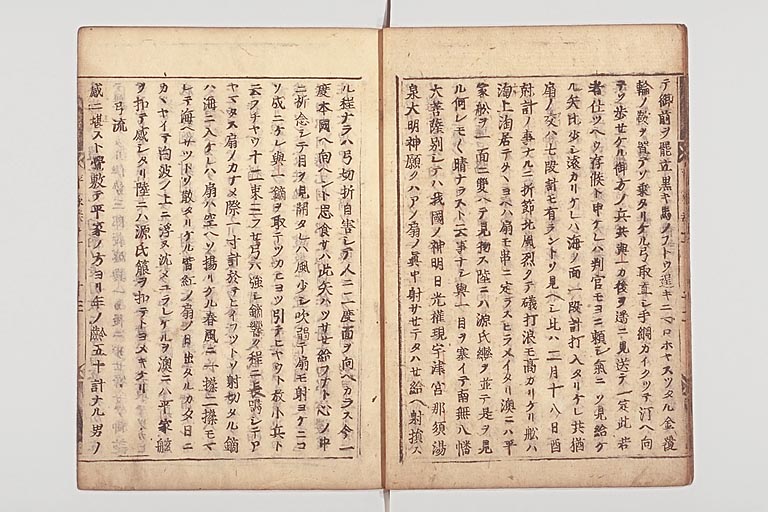 テ御前ヲ罷立黒キ馬ノフトウ逞キニマロホヤスツタル金覆
輪ノ鞍ヲ置ソ乗タリケル弓取直シ手綱カイクツテ汀ヘ向
テソ歩セケル御方ノ兵共與一カ後ヲ遙ニ見送テ一定此若
者仕ツヘウ存候ト申ケレハ判官モヨニ頼シ氣ニソ見給ケ
ル矢比少シ遠カリケレハ海ノ面一段計打入タリケレ共猶
扇ノ交ハ七段計モ有ラントソ見ヘシ比ハ二月十八日酉
尅計ノ事ナルニ折節北風烈クテ磯打浪モ高カリケリ舩ハ
淘上淘居テタヽヨヘハ扇モ串ニ定ラスヒラメイタリ澳ニハ平
家舩ヲ一面ニ雙ヘテ見物ス陸ニハ源氏轡ヲ並テ是ヲ見
ル何レモ〱晴ナラスト云事ナシ與一目ヲ塞イテ南無八幡
大菩薩別シテハ我國ノ神明日光権現宇津宮那須湯
泉大明神願クハアノ扇ノ眞中射サセテタハセ給ヘ射損ス
ル程ナラハ弓切折自害シテ人ニ二度面ヲ向ヘカラス今一
度本國ヘ向ヘント思食サハ此矢ハツサセ給フナト心ノ中
ニ祈念シテ目ヲ見開タレハ風少シ吹弱テ扇モ射ヨケニコ
ソ成ニケレ與一鏑ヲ取テツカヒヨツ引テヒヤウト放小兵ト
云フチヤウ十二束三フセ弓ハ強シ鏑響ク程ニ長鳴シテア
ヤマタス扇ノカナメ際一寸計於テヒイフツトソ射切タル鏑
ハ海ニ入ケレハ扇ハ空ヘソ揚リケル春風ニ一揉二揉モマ
レテ海ヘサツトソ散タリケル皆紅ノ扇ノ日出タルカ夕日ニ
カヽヤイテ白波ノ上ニ浮ヌ沈ヌユラレケルヲ澳ニハ平家舷
ヲ扣テ感シタリ陸ニハ源氏箙ヲ扣テトヨメキケリ
弓流
感ニ堪スト覺敷テ平家ノ方ヨリ年ノ齢五十計ナル男ノ